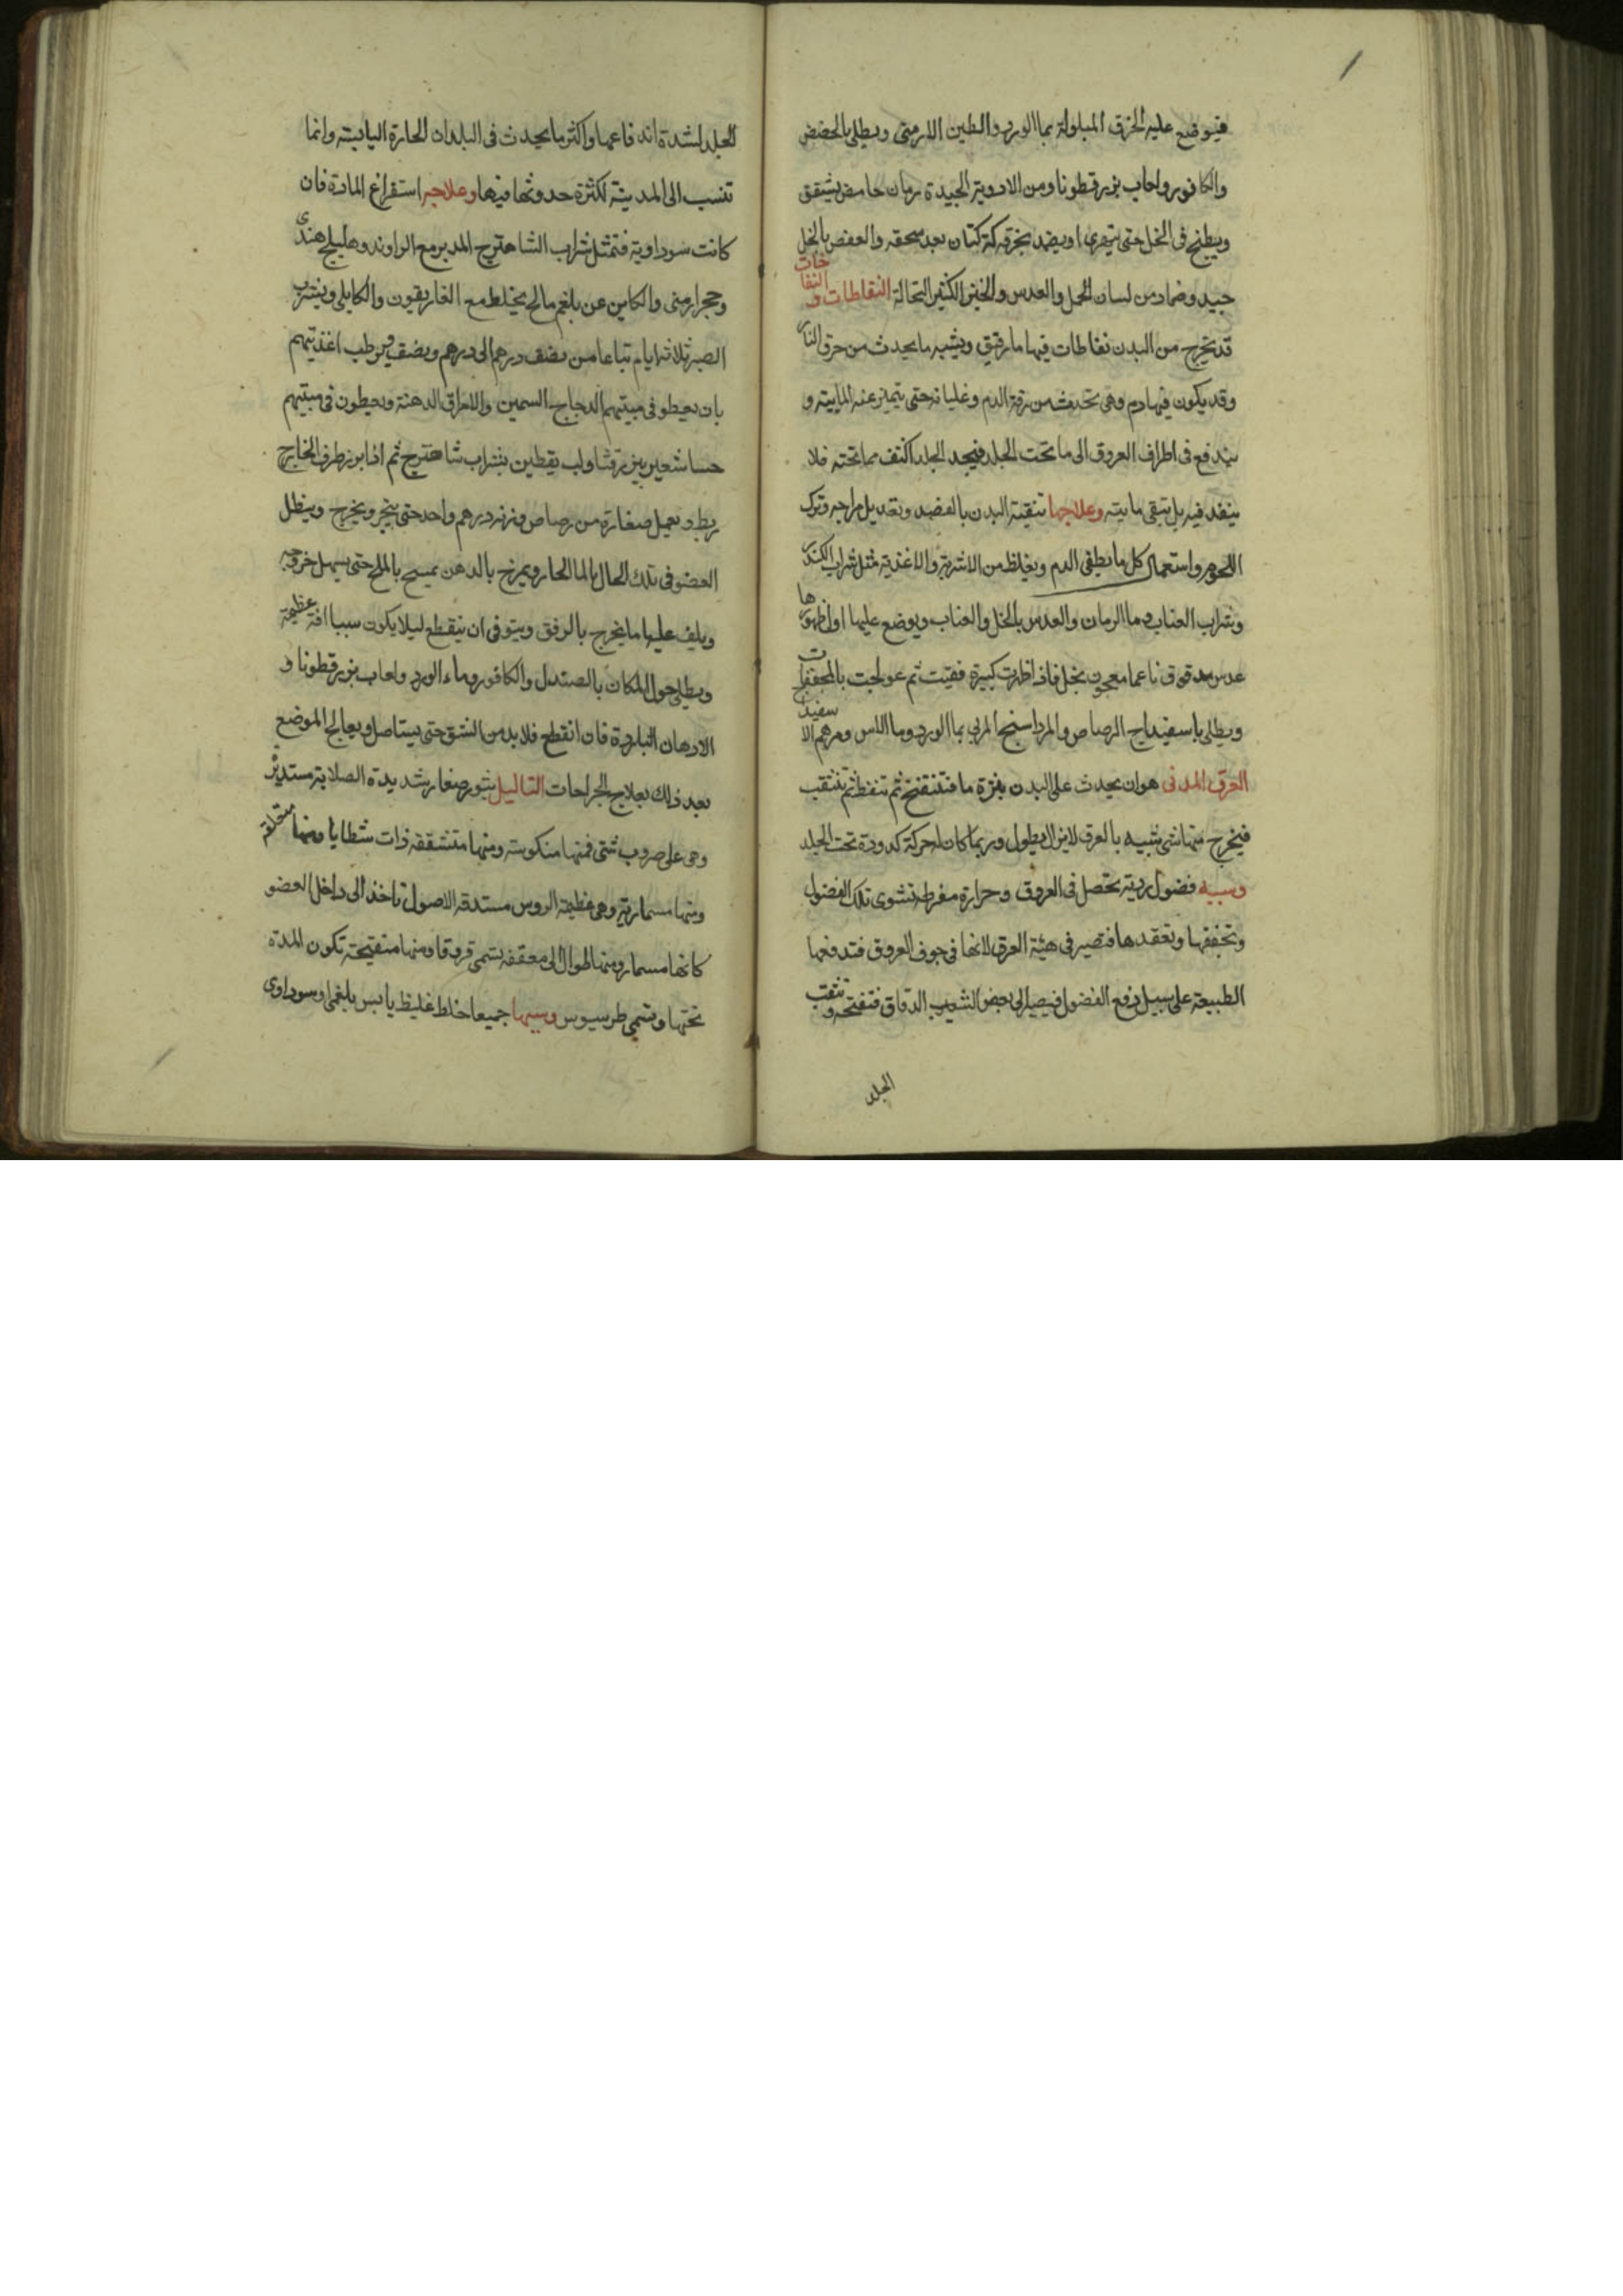 فيوضع عليه الخرق المبلولة بما الورد والطين الارمنى ويطلى بالحضض
والكافور ولعاب بزرقطونا ومن الادوية الجيدة رمان حامض يشقق
ويطبخ فى الخل حتى يتهرى اويضمد بخرقه كتان بعد سحقه والعفص بالخل
جيد وضماد من لسان الحمل والعدس والخبز الكثير النخالة النفاطات و النفاخات
قد يخرج من البدن نفاطات فيها ما رقيق ويشبه ما يحدث من حرق النار
وقد يكون فيها دم وهى تحدث من رقة الدم وغليانه حتى يتميز عنه المايية و
يندفع فى اطراف العروق الى ما تحت الجلد فيجد الجلد اكثف مما تحته فلا
ينفد فيه بل تبقى مايته وعلاجها تنقية البدن بالفصد وتعديل مزاجه وترك
اللحوم واستعمال كل ما يطفى الدم ويغلظ من الاشربة والاغذية مثل شراب الكندر
وشراب العناب وما الرمان والعدس بالخل والعناب ويوضع عليها اول ظهورها
عدس مدقوق ناعما معجون بخل فاذا ظهرت كبيرة فقيت ثم عولجت بالمجففات
ويطلى باسفيداج الرصاص والمرداسنج المربى بما الورد وما الاس ومرهم الاسفيداج
العرق المدنى هو ان يحدث على البدن بثرة ما فتنتفخ ثم تتنفط ثم تتثقب
فيخرج منها شى شبيه بالعرق لا يزال يطول وربما كان له حركة كدودة تحت الجلد
وسببه فضول ردية تحصل فى العروق وحرارة مفرطه تشوى تلك الفضول
وتجففها وتعقدها فتصير فى هيئة العرق لانها فى جوف العروق فتدفعها
الطبيعة على سبيل دفع الفضول فيصير الى بعض الشعب الدقاق فتفتحه و تثقب
الجلد
الجلد لشدة اندفاعها واكثر ما يحدث فى البلدان الحارة اليابسه وانما
تنسب الى المدينة لكثرة حدوثها فيها وعلاجه استفراغ المادة فان
كانت سوداوية فتمثل شراب الشاهترج المدبر مع الراوند وهليلج هندى
وحجر ارمنى والكاين عن بلغم مالح يخلط مع الغاريقون والكابلى ويشرب
الصبر ثلاثه ايام تباعا من نصف درهم الى درهم ونصف ويرطب اغذيتهم
بان يعطو فى مبيتهم الدجاج السمين والامراق الدهنة ويعطون فى مبيتهم
حسا شعير ببزر قثا ولب يقطين بشراب شاهترج ثم اذا برز طرف الخارج
ربط ويعمل صغارة من رصاص وزنه درهم واحد حتى ينجر ويخرج وينطل
العضو فى تلك الحال بالما الحار ويمرخ بالدهن يمسح بالملح حتى يسهل خروجه
ويلف عليها ما يخرج بالرفق ويتوقى ان ينقطع ليلا يكون سببا افة عظيمة
ويطلى حول المكان بالصندل والكافور وماء الورد ولعاب بزرقطونا و
الادهان الباردة فان انقطع فلا بد من الشق حتى يستاصل ويعالج الموضع
بعد ذلك بعلاج الجراحات الثاليل بثور صغار شديدة الصلابة مستديرة
وهى على ضروب شتى فمنها منكوسة ومنها متشققه ذات شظايا ومنها متعلقة
ومنها مسمارية وهى عظيمة الروس مستدقه الاصول تاخذ الى داخل العضو
كانها مسمار ومنها طوال الى معقفه تسمى قرونا ومنها منتفيحة تكون المدة
تحتها وتسمى طرسيوس وسببها جميعا خلط غليظ يابس بلغمى او سوداوى